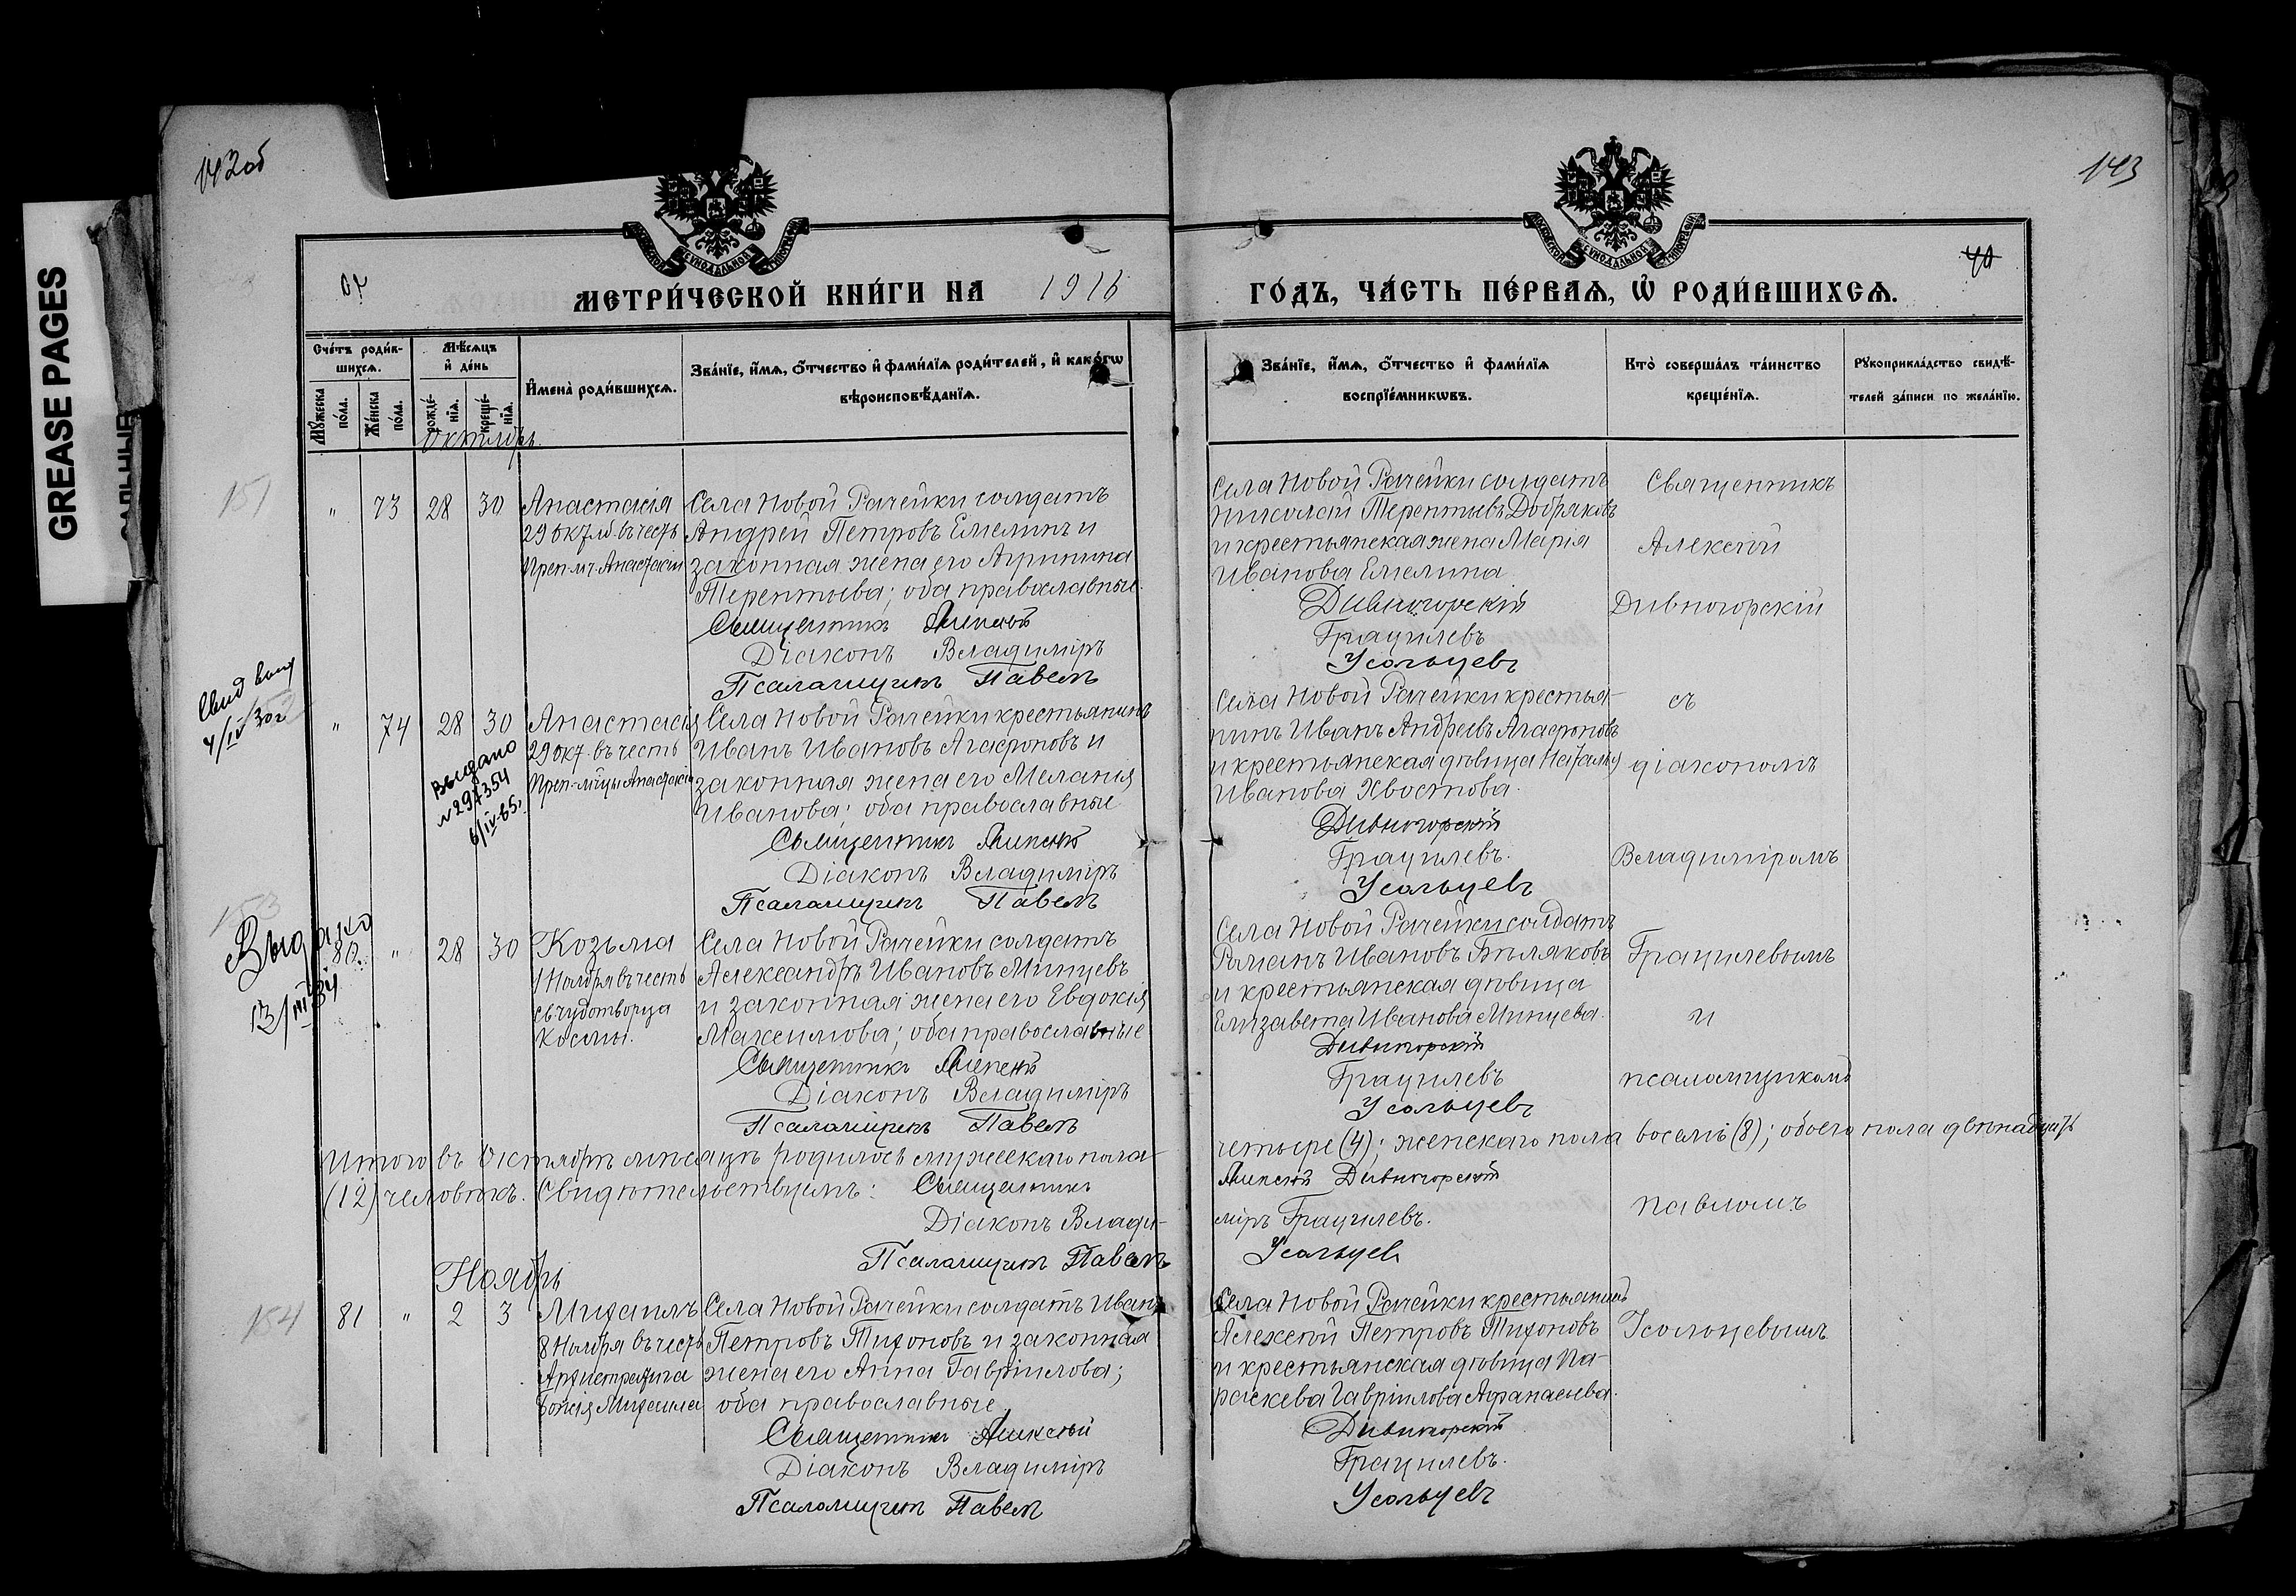 142об
143
GREASE PAGES
МЕТРИ́ЧЕСКОЙ КНИ́ГИ НА 1916
ГО́ДЪ, ЧА́СТЬ ПЕ́РВАЯ, Ѡ҆ РОДИ́ВШИХСЯ.
40
Сче́тъ роди́в-
шихся.
Мꙋ́жеска
по́ла.
Же́нска
по́ла.
Мѣ́сяцъ
и҆ де́нь
рожде́-
нїя.
креще́-
нїя.
И҆мена̀ роди́вшихся.
Зва́нїе, и҆́мя, ѻ҆́тчество и҆ фами́лїя роди́телей, и҆ како́гѡ
вѣроисповѣ́данїя.
Зва́нїе, и҆́мя, ѻ҆́тчество и҆ фами́лїя
воспрїе́мникѡвъ.
Кто̀ соверша́лъ та́инство
креще́нїя.
Рꙋкоприкла́дство свидѣ́-
телей за́писи по жела́нїю.
Октябрь
151
" 73 28 30 Анастасія
29 окт. въ честь
Преп-мч Анастасіи
Села Новой Рачейки солдатъ
Андрей Петровъ Емелинъ и
законная жена его Агрипина
Терентьева; оба православные.
Священникъ Алексѣй
Діаконъ Владиміръ
Псаломщикъ Павелъ
Села Новой Рачейки солдатъ
Николай Терентьевъ Добряковъ
и крестьянская жена Марія
Иванова Емелина
Дивногорскій
Грацилевъ
Усольцевъ
Священникъ
Алексѣй
Дивногорскій
съ
діакономъ
Владиміромъ
Грацилевымъ
и
псаломщикомъ
Павломъ
Усольцевымъ
Свид выд
4/IV 30г
" 74 28 30 Анастасія
29 окт. въ честь
Преп-м-цы Анастасіи
Выдано
№297354
6/IV-65.
Села Новой Рачейки крестьянинъ
Иванъ Ивановъ Агафоновъ и
законная жена его Меланія
Иванова; оба православные
Священникъ Алексѣй
Діаконъ Владиміръ
Псаломщикъ Павелъ
Села Новой Рачейки крестья-
нинъ Иванъ Андреевъ Агафоновъ
и крестьянская дѣвица Наталья
Иванова Хвостова.
Дивногорскій
Грацилевъ.
Усольцевъ
153
Выдано
13/III
80. " 28 30 Козьма
1 Ноября въ честь
св чудотворца
Космы.
Села Новой Рачейки солдатъ
Александръ Ивановъ Минцевъ
и законная жена его Евдокія
Максимова; оба православные
Священникъ Алексѣй
Діаконъ Владиміръ
Псаломщикъ Павелъ
Села Новой Рачейки солдатъ
Романъ Ивановъ Бѣляковъ
и крестьянская дѣвица
Елизавета Иванова Минцева.
Дивногорскій
Грацилевъ
Усольцевъ
Итого въ Октябрѣ мѣсяцѣ родилось мужескаго пола
четыре (4); женскаго пола восемь (8); обоего пола двенадцать
(12) человѣкъ. Свидѣтельствуемъ: Священникъ
Алексѣй Дивногорскій
Діаконъ Влади-
міръ Грацилевъ.
Псаломщикъ Павелъ
Усольцевъ
Ноябрь
154
81 " 2 3 Михаилъ
8 Ноября въ честь
Архистратига
Божія Михаила
Села Новой Рачейки солдатъ Иванъ
Петровъ Тихоновъ и законная
жена его Анна Гавріилова;
оба православные
Священникъ Алексѣй
Діаконъ Владиміръ
Псаломщикъ Павелъ
Села Новой Рачейки крестьянинъ
Алексѣй Петровъ Тихоновъ
и крестьянская дѣвица Па-
раскева Гавріилова Афанасьева.
Дивногорскій
Грацилевъ.
Усольцевъ